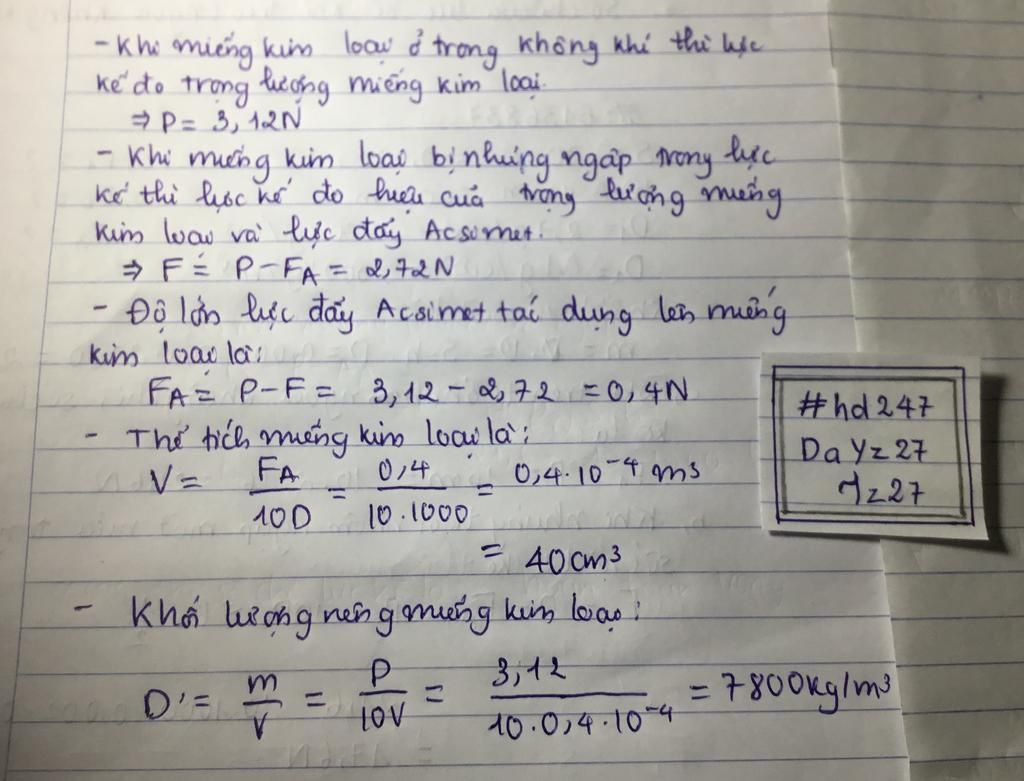 - Khi miếng kim loại ở trong không khí thì lực
kế đo trọng lượng miếng kim loại.
⇒ P = 3,12N
- Khi miếng kim loại bị nhúng ngập trong lực
kế thì lực kế đo hiệu của trọng lượng miếng
kim loại và lực đẩy Acsimet.
⇒ F = P - FA = 2,72N
- Độ lớn lực đẩy Acsimet tác dụng lên miếng
kim loại là:
FA = P - F = 3,12 - 2,72 = 0,4N
- Thể tích miếng kim loại là:
V = FA / 10D = 0,4 / 10.1000 = 0,4.10⁻⁴ m³
= 40cm³
- Khối lượng riêng miếng kim loại:
D' = m / V = P / 10V = 3,12 / 10.0,4.10⁻⁴ = 7800kg/m³
#hd247
DaYz27
1z27